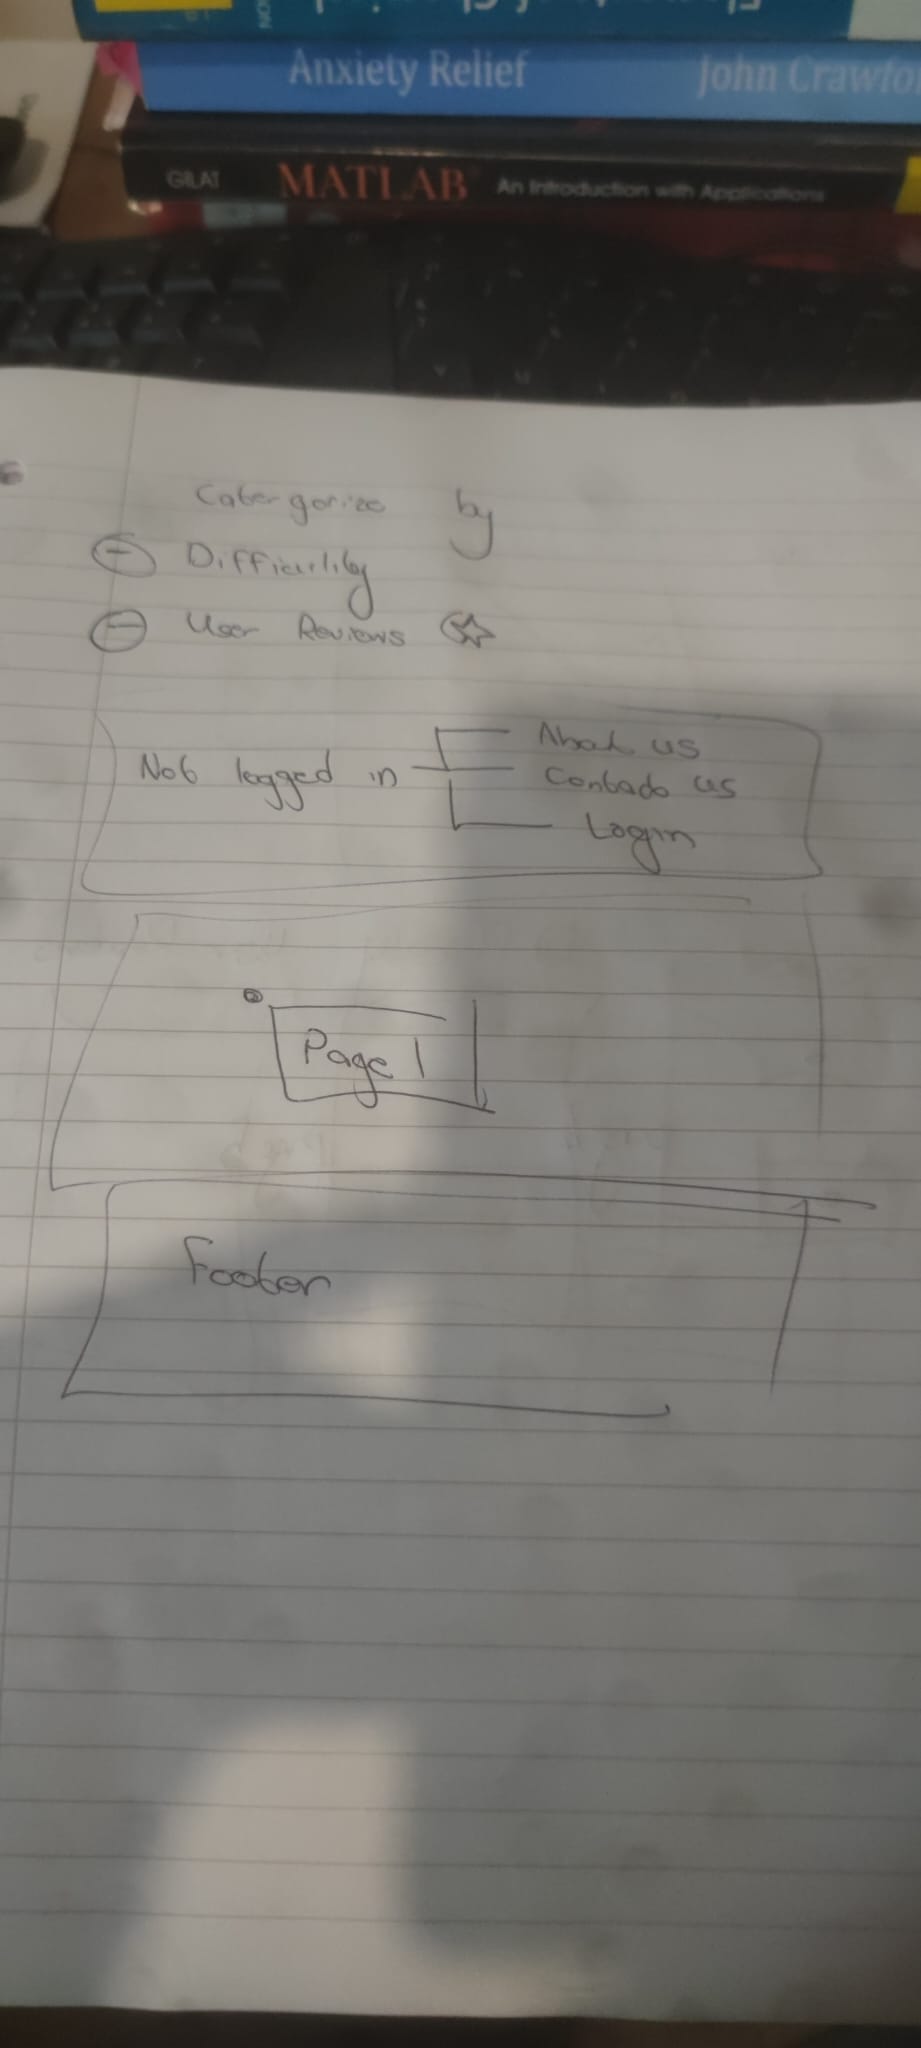 Anxiety Relief John Crawfo
GILAT MATLAB An Introduction with Applications
Catergorize by
Difficulity
User Reviews
Not logged in
About us
Contado us
Login
Page 1
Footer